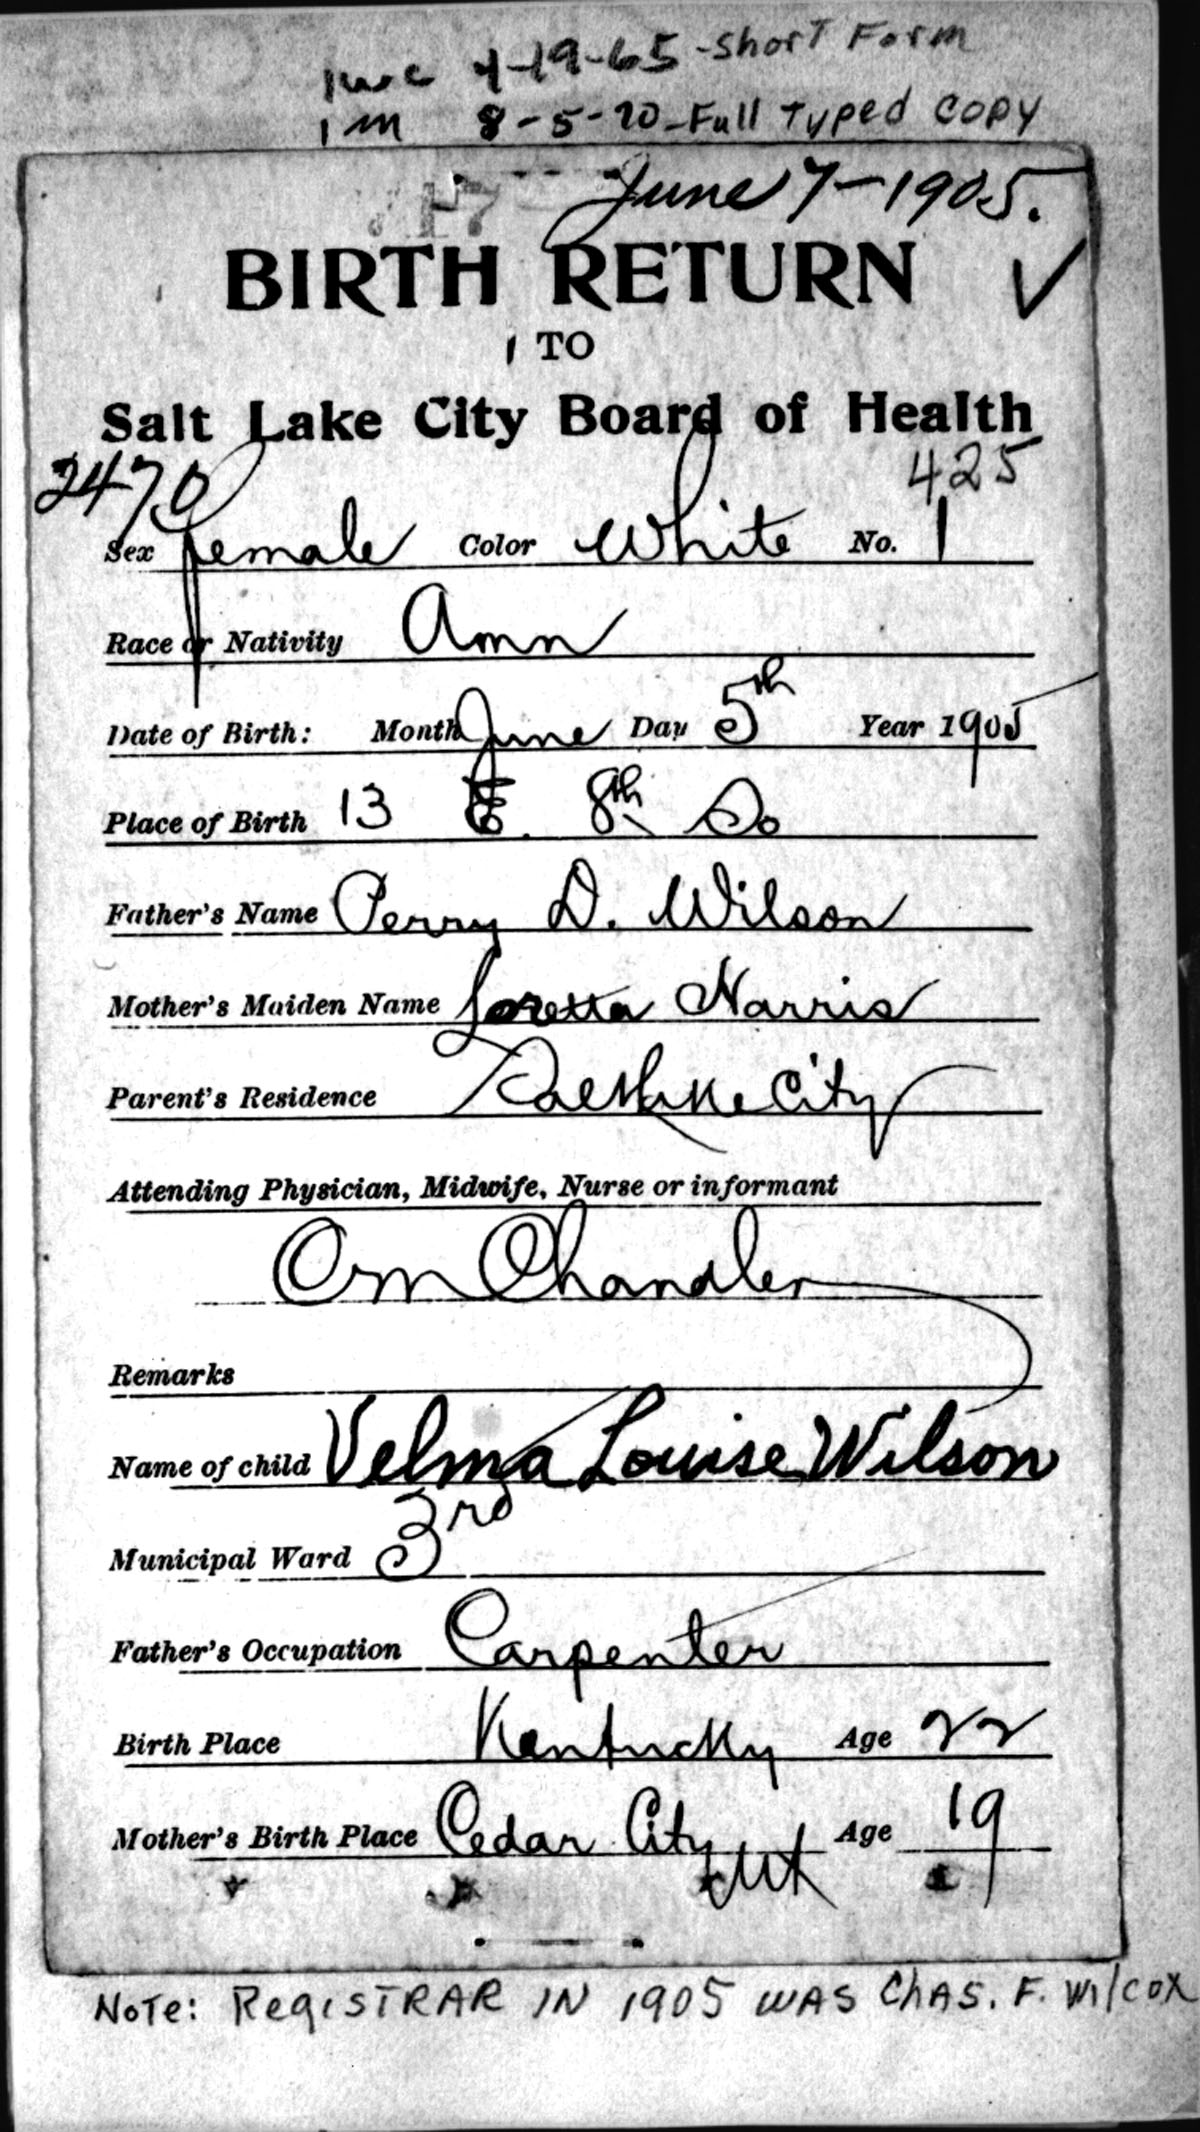 1wc 4-19-65-Short Form
1m 8-5-70-Full Typed Copy
June 7-1905.
BIRTH RETURN
TO
Salt Lake City Board of Health
2470 425
Sex female Color White No. 1
Race or Nativity Amn
Date of Birth: Month June Day 5th Year 1905
Place of Birth 13 E. 8th So
Father's Name Perry D. Wilson
Mother's Maiden Name Loretta Harris
Parent's Residence Salt Lake City
Attending Physician, Midwife, Nurse or informant
Orm Chandler
Remarks
Name of child Velma Louise Wilson
Municipal Ward 3rd
Father's Occupation Carpenter
Birth Place Kentucky Age 22
Mother's Birth Place Cedar City Ut Age 19
Note: Registrar in 1905 was Chas. F. Wilcox